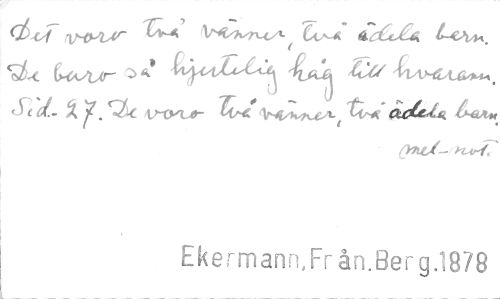 Det voro två vänner, två ädela barn.
De buro så hjertelig håg till hvarann.
Sid. 27. De voro två vänner, två ädela barn.
mel-not.
Ekermann, Från. Berg. 1878